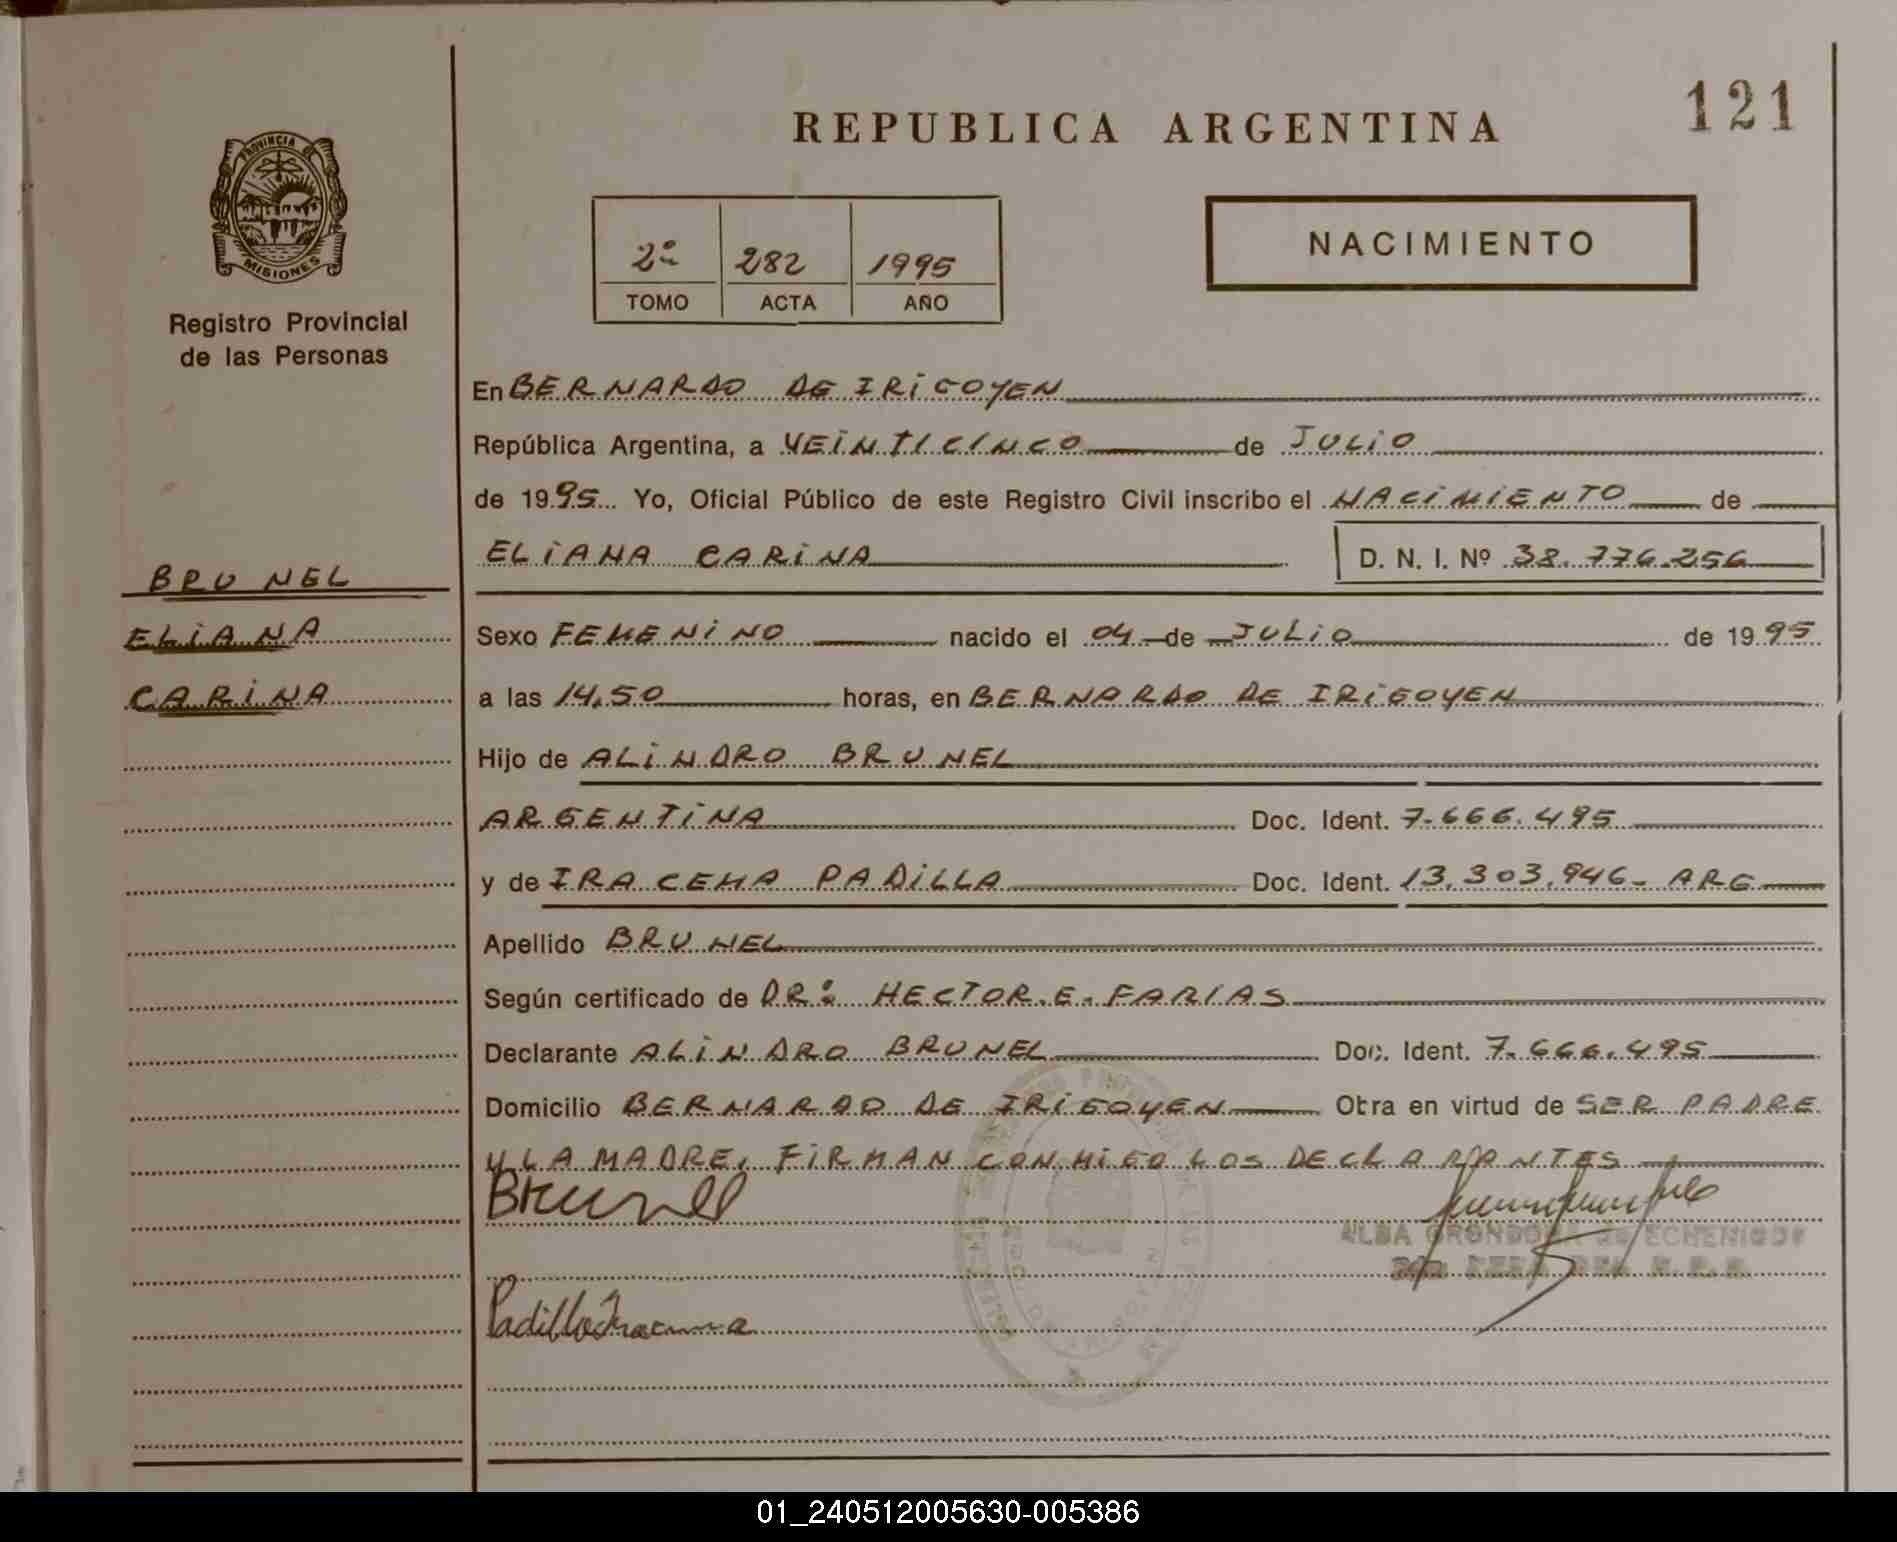 REPUBLICA ARGENTINA
121
PROVINCIA DE
MISIONES
Registro Provincial
de las Personas
2º 282 1995
TOMO ACTA AÑO
NACIMIENTO
En BERNARDO DE IRIGOYEN
República Argentina, a VEINTICINCO de JULIO
de 1995 Yo, Oficial Público de este Registro Civil inscribo el NACIMIENTO de
ELIANA CARINA D. N. I. Nº 38.776.256
BRUNEL
ELIANA
CARINA
Sexo FEMENINO nacido el 04 de JULIO de 1995
a las 14,50 horas, en BERNARDO DE IRIGOYEN
Hijo de ALINDRO BRUNEL
ARGENTINA Doc. Ident. 7.666.495
y de IRACEMA PADILLA Doc. Ident. 13.303.946- ARG
Apellido BRUNEL
Según certificado de DR: HECTOR.E.FARIAS
Declarante ALINDRO BRUNEL Doc. Ident. 7.666.495
Domicilio BERNARDO DE IRIGOYEN Obra en virtud de SER PADRE
Y LA MADRE, FIRMAN CONMIGO LOS DECLARANTES
Brunel
ALBA GRONDONA de ECHENIQUE
Padilla Iracema
01_240512005630-005386